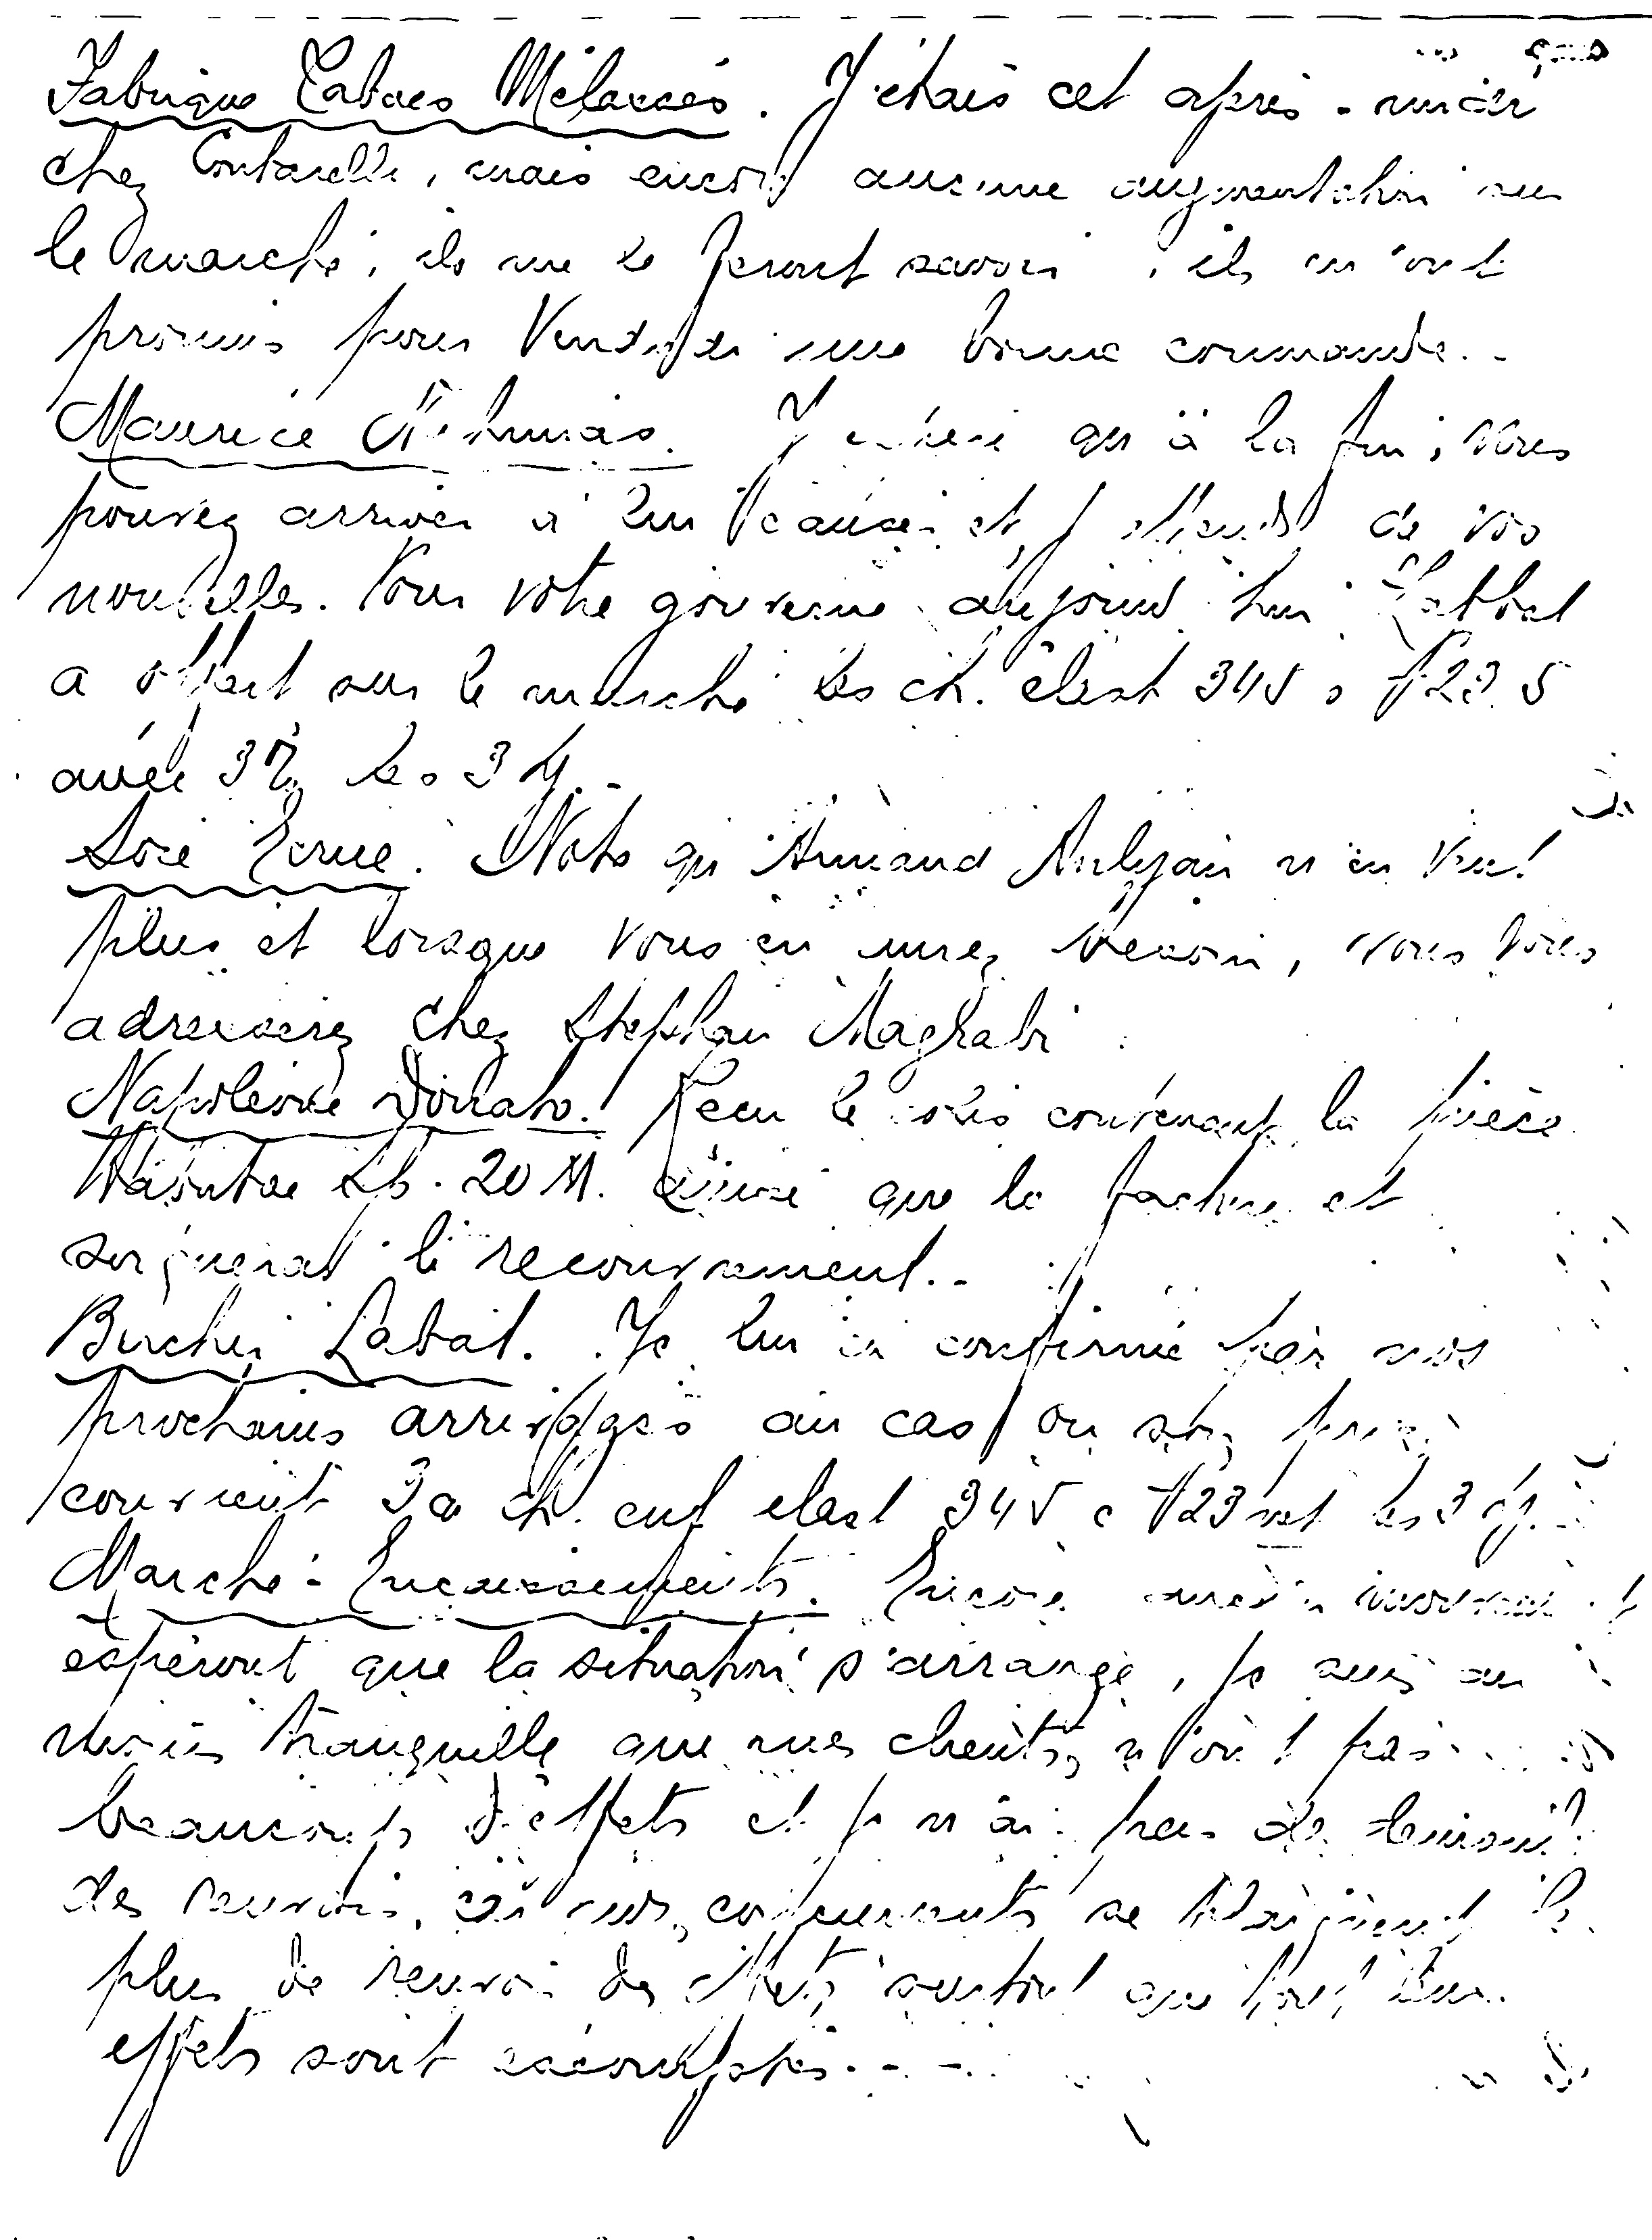 Fabrique Tabacs Mélassés. J'étais cet après-midi
chez Contarelli, mais encore aucune augmentation sur
le marché, ils me le feront savoir, ils m'ont
promis pour Vendredi une bonne commande..
Maurice J qu'à la fin, vous
pouvez arriver à lui causer et j'attends de vos
nouvelles. Pour votre gouverne, aujourd'hui
a offert sur le marché les ch. élast 345 à 23.5
avec 3% les 3 
Soie Ecrue. Note qu'Armand n'en veut
plus et lorsque vous en aurez besoin, vous vous
adresserez chez Stephan Maghabi
Napoleone Donato. Recu le colis contenant la pièce
20 M. ainsi que la facture et
soignerai le recouvrement..
Je lui ai confirmé par nos
prochains arrivages au cas où son prix
convient 3 ch. enf élast 345 à 23 net les 3 
Marché - Encaissements. Encore
espéront que la situation s'arrange, je suis au
moins tranquille que mes clients n'ont pas
beaucoup d'effets et je n'ai pas de
des renvois, car nos concurrents se plaignent
plus de renvoi des effets surtout que tous leurs
effets sont escomptés...